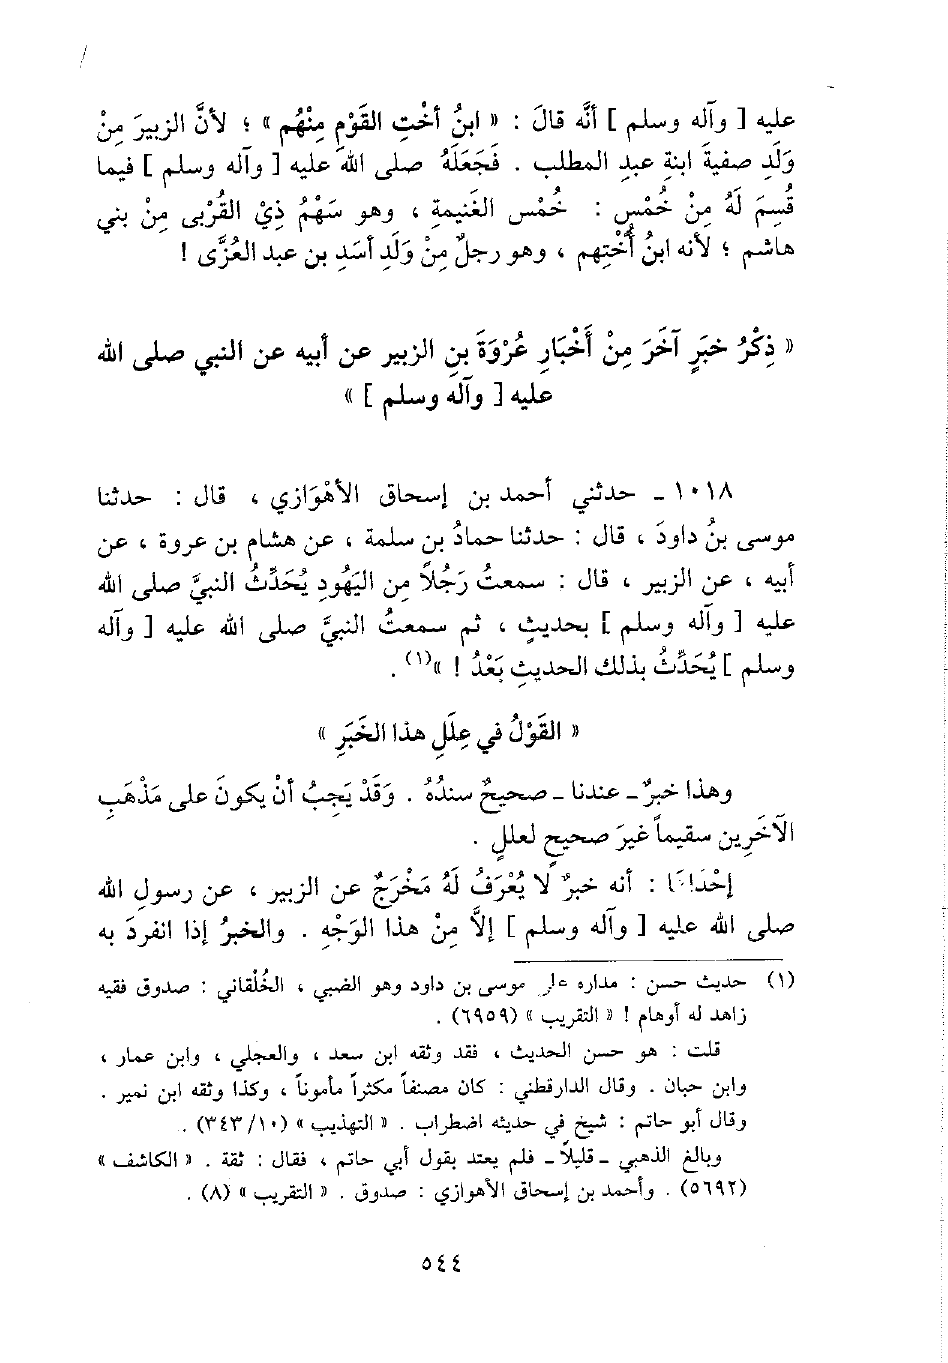 عليه [ وآله وسلم ] أنَّه قالَ : « ابنُ أخْتِ القَوْمِ مِنْهُم » ؛ لأنَّ الزبيرَ مِنْ
وَلَدِ صفيةَ ابنةِ عبدِ المطلب . فَجَعَلَهُ صلى اللهُ عليه [ وآله وسلم ] فيما
قُسِمَ لَهُ مِنْ خُمْسِ : خُمْس الغَنيمةِ ، وهو سَهْمُ ذِيْ القُرْبى مِنْ بني
هاشم ؛ لأنه ابنُ أُخْتِهم ، وهو رجلٌ مِنْ وَلَدِ أسَدِ بن عبد العُزَّى !
« ذِكْرُ خبَرٍ آخَرَ مِنْ أَخْبَارِ عُرْوَةَ بنِ الزبير عن أبيه عن النبي صلى الله
عليه [ وآله وسلم ] »
١٠١٨ ـ حدثني أحمد بن إسحاق الأهْوَازي ، قال : حدثنا
موسى بنُ داودَ ، قال : حدثنا حمادُ بن سلمة ، عن هشام بن عروة ، عن
أبيه ، عن الزبير ، قال : سمعتُ رَجُلاً مِن اليَهُودِ يُحَدِّثُ النبيَّ صلى الله
عليه [ وآله وسلم ] بحديثٍ ، ثم سمعتُ النبيَّ صلى الله عليه [ وآله
وسلم ] يُحَدِّثُ بذلك الحديثِ بَعْدُ ! »(١) .
« القَوْلُ في عِلَلِ هذا الخَبَرِ »
وهذا خبرٌ ـ عندنا ـ صحيحٌ سندُهُ . وَقَدْ يَجِبُ أنْ يكونَ على مَذْهَبِ
الآخَرِين سقيماً غيرَ صحيحٍ لعللٍ .
إحْدَاهَا : أنه خبرٌ لا يُعْرَفُ لَهُ مَخْرَجٌ عن الزبير ، عن رسولِ الله
صلى الله عليه [ وآله وسلم ] إلاَّ مِنْ هذا الوَجْهِ . والخبرُ إذا انفردَ به
(١) حديث حسن : مداره على موسى بن داود وهو الضبي ، الخُلْقاني : صدوق فقيه
زاهد له أوهام ! « التقريب » (٦٩٥٩) .
قلت : هو حسن الحديث ، فقد وثقه ابن سعد ، والعجلي ، وابن عمار ،
وابن حبان . وقال الدارقطني : كان مصنفاً مكثراً مأموناً ، وكذا وثقه ابن نمير .
وقال أبو حاتم : شيخ في حديثه اضطراب . « التهذيب » (٣٤٣/١٠) .
وبالغ الذهبي ـ قليلاً ـ فلم يعتد بقول أبي حاتم ، فقال : ثقة . « الكاشف »
(٥٦٩٢) . وأحمد بن إسحاق الأهوازي : صدوق . « التقريب » (٨) .
٥٤٤